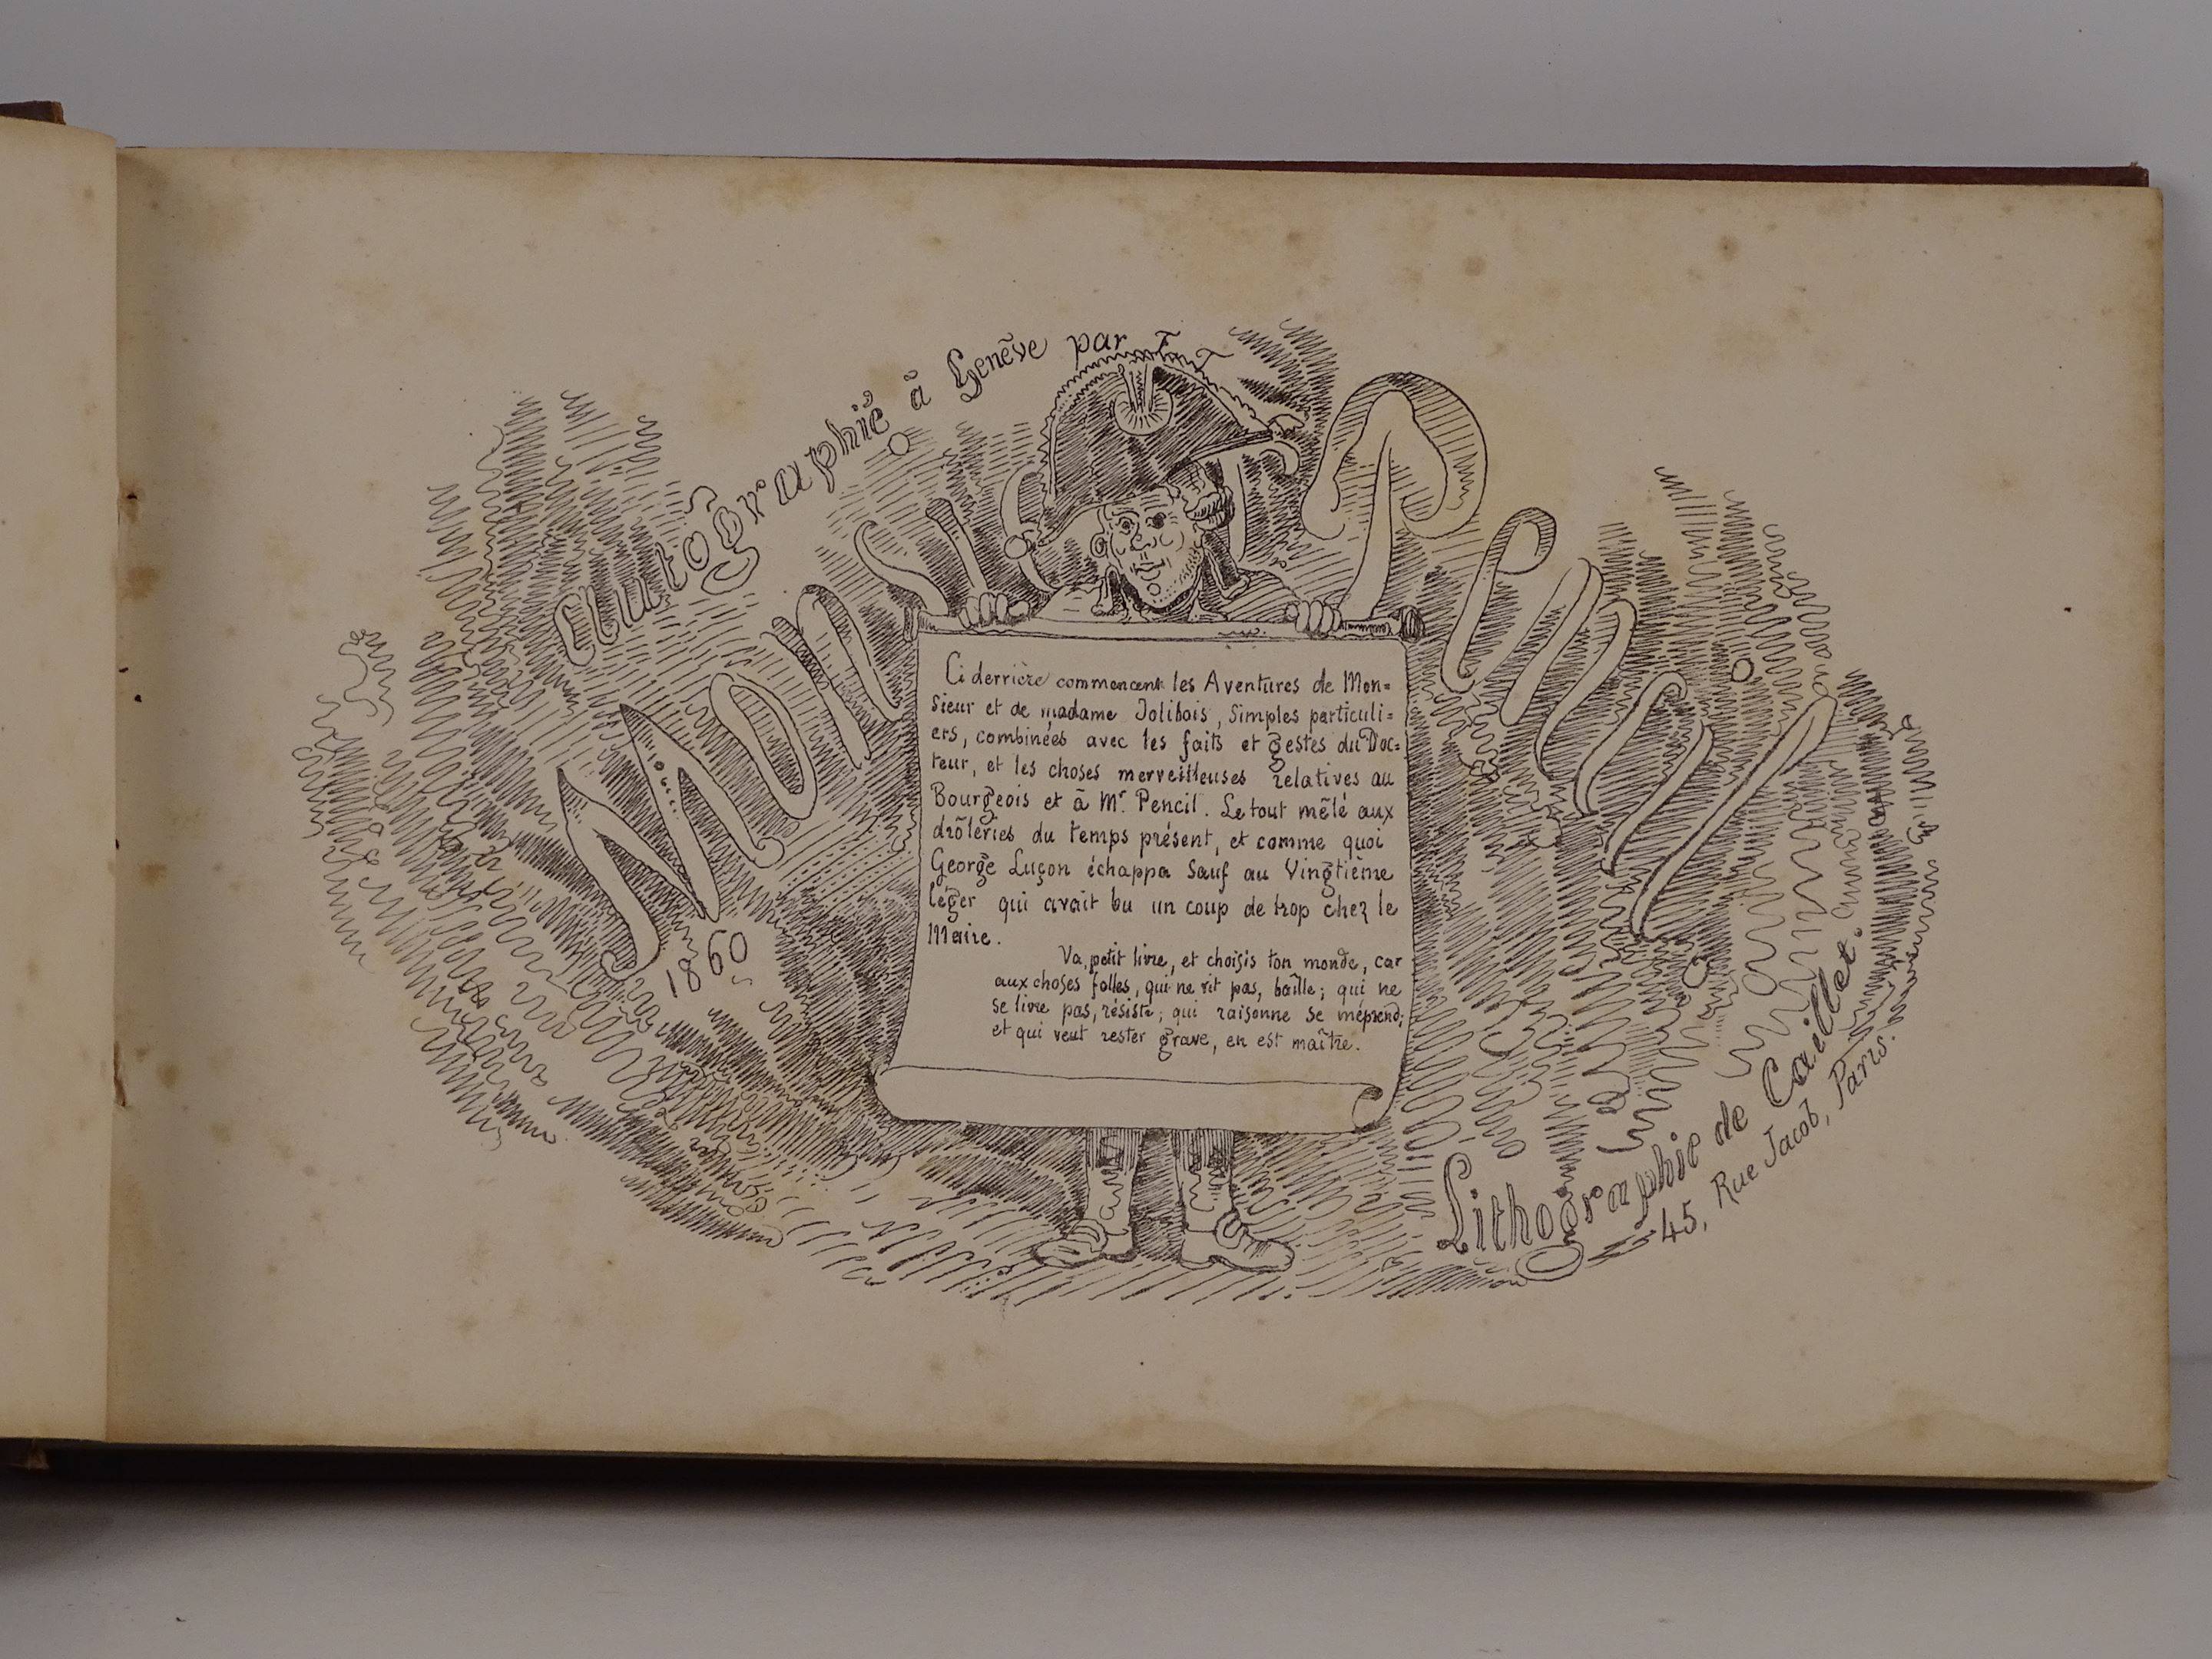 Autographié à Genève par
MONSIEUR PENCIL
1860
Ci derrière commencent les Aventures de Mon=
sieur et de madame Jolibois, simples particuli=
ers, combinées avec les faits et gestes du Doc=
teur, et les choses merveilleuses relatives au
Bourgeois et à Mr. Pencil. Le tout mêlé aux
drôleries du temps présent, et comme quoi
George Luçon échappa sauf au Vingtième
léger qui avait bu un coup de trop chez le
Maire.
Va, petit livre, et choisis ton monde, car
aux choses folles, qui ne rit pas, bâille; qui ne
se livre pas, résiste; qui raisonne se méprend;
et qui veut rester grave, en est maître.
Lithographie de Caillet.
45, Rue Jacob, Paris.